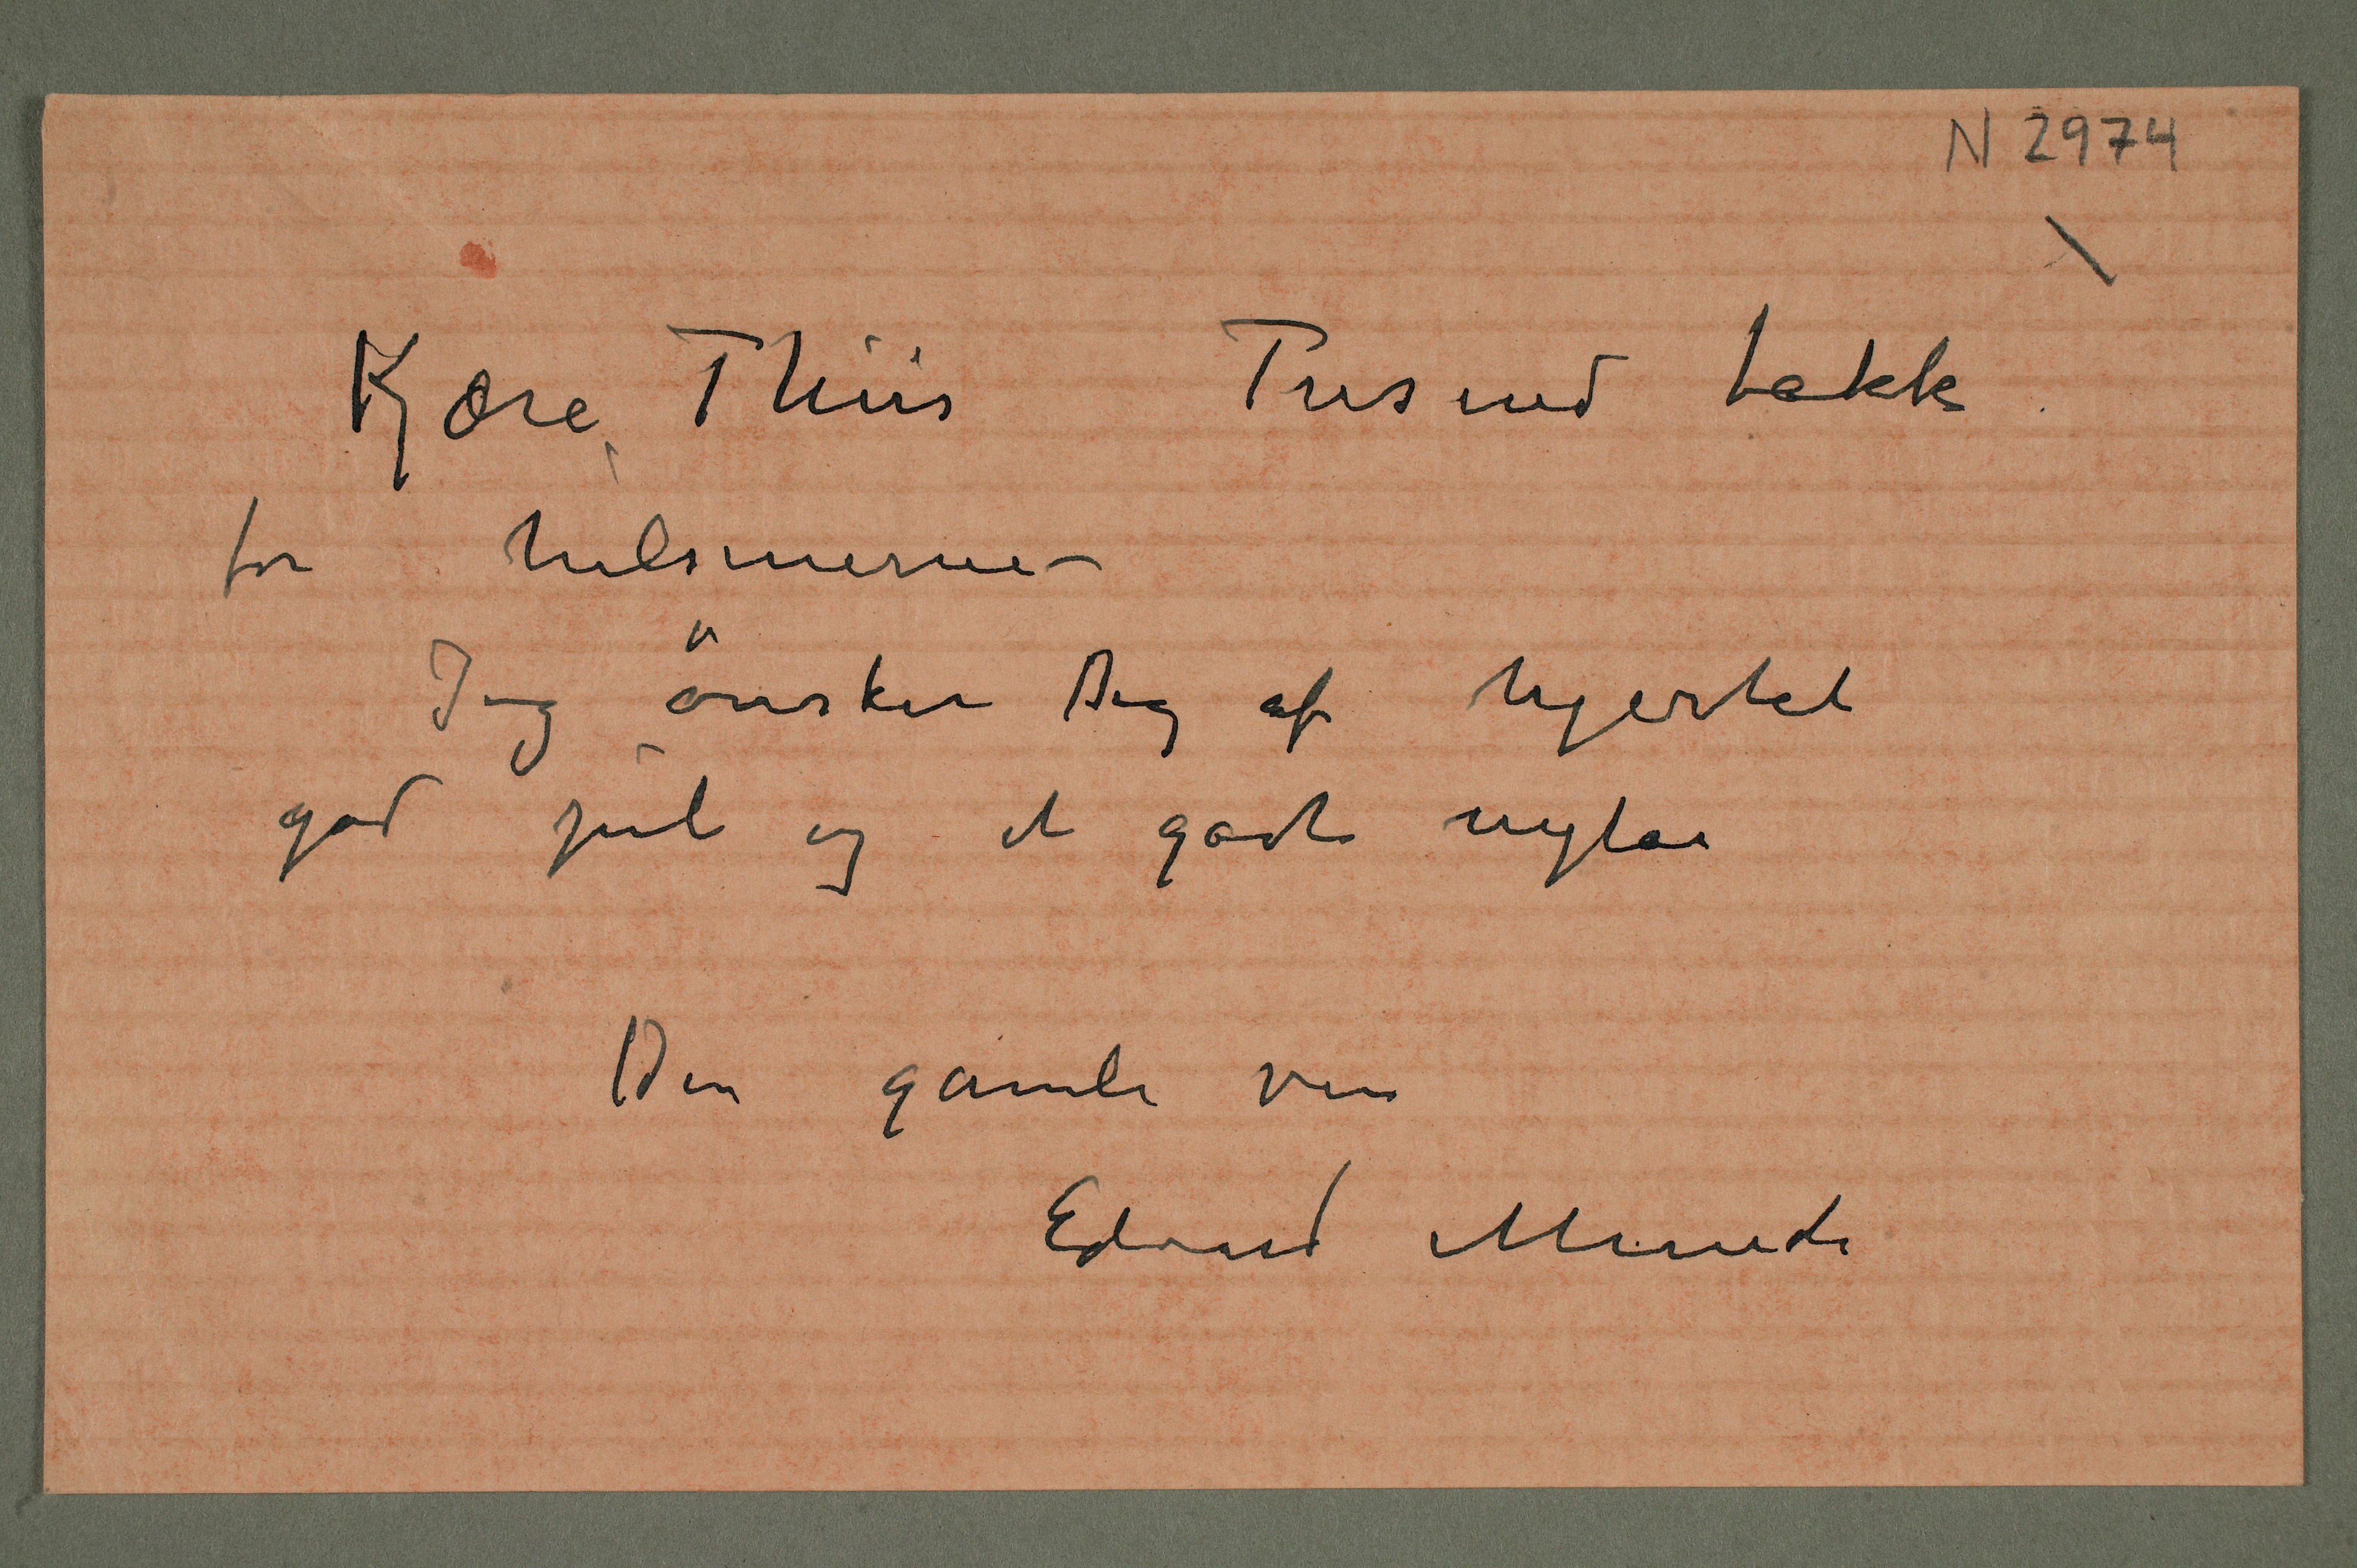 N 2974
Kjære Thiis Tusend takk
for hilsenerne –
Jeg ønsker Dig af hjertet
god jul og et godt nytår
Din gamle ven
Edvard Munch